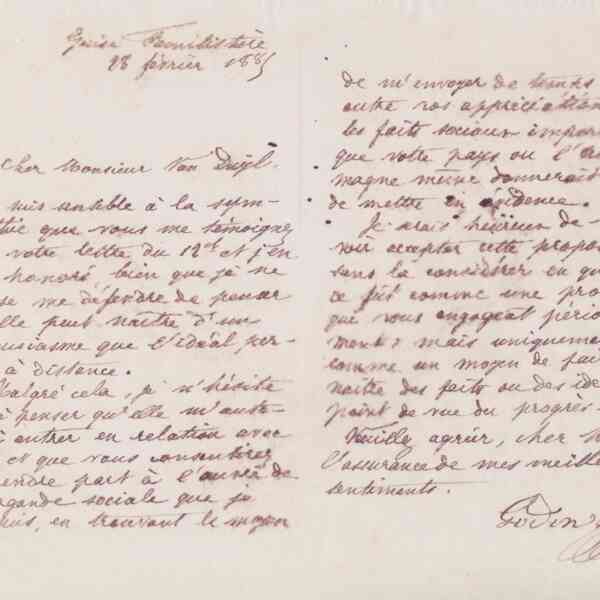 Guise Familistère
28 février 1885
Cher Monsieur Van Duyl.
suis sensible à la sym-
thie que vous me témoignez
votre lettre du 12 et j'en
honoré bien que je ne
se me défendre de penser
elle peut naître d'un
ousiasme que l'idéal per-
à distance.
Malgré cela, je n'hésite
à penser qu'elle m'auto-
à entrer en relation avec
et que vous consentirez
rendre part à l'œuvre de
pagande sociale que je
suis, en trouvant le moyen
de m'envoyer de temps
outre vos appréciation
les faits sociaux impor
que votre pays ou l'A
magne même donneraient
de mettre en évidence.
Je serais heureux de
voir accepter cette propo
sans la considérer en qu
ce fût comme une pro
qui vous engageât pério
ment, mais uniqueme
comme un moyen de fai
naître des faits ou des idé
point de vue du progrès.
Veuillez agréer, cher M
l'assurance de mes meille
sentiments.
Godin